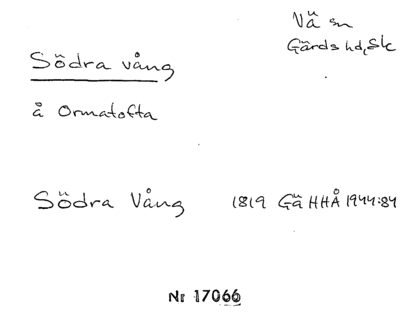 Vä sn
Gärds hd, Sk
Södra vång
å Ormatofta
Södra Vång 1819 Gä HHÅ 1944:84
Nr 17066